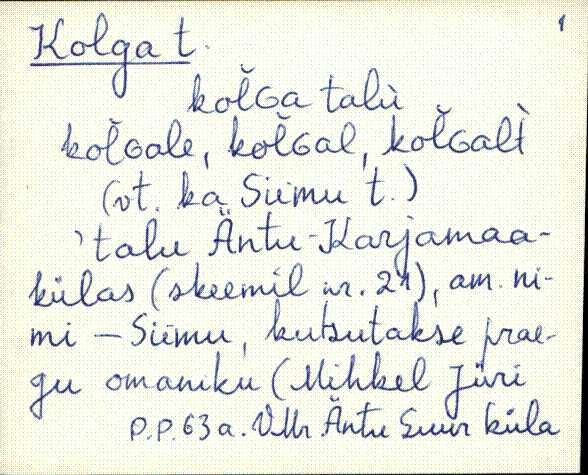 Kolga t. 1
kol̆Ga talù
kol̆Gale, kol̆Gal, kol̆Galt̀
(vt. ka Siimu t.)
'talu Äntu-Karjamaa-
külas (skeemil nr. 21), am. ni-
mi – Siimu, kutsutakse prae-
gu omaniku (Mihkel Jüri
P.P. 63 a. VMr Äntu Suur küla